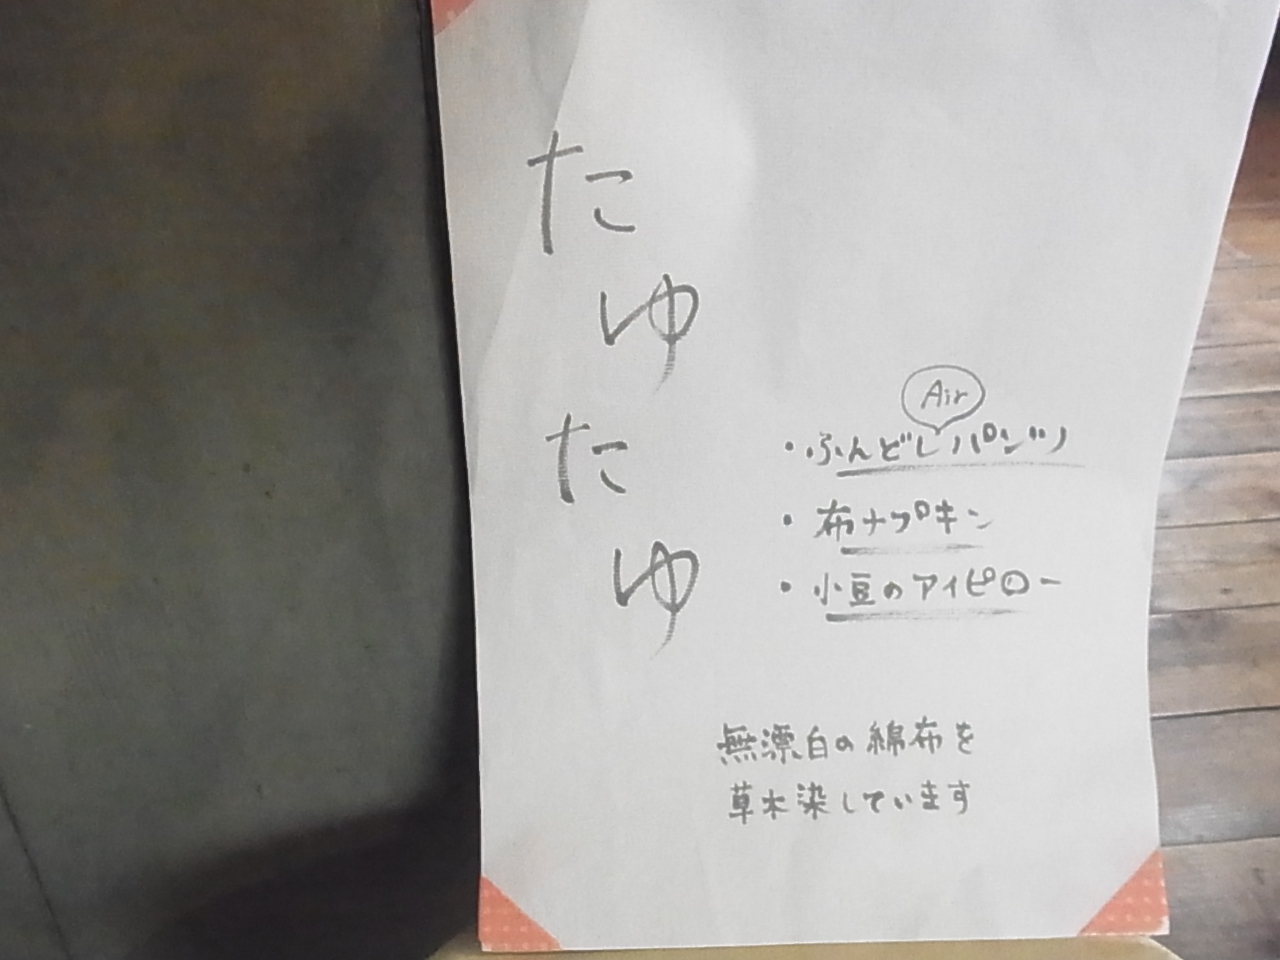 たゆたゆ
Air
・ふんどしパンツ
・布ナプキン
・小豆のアイピロー
無漂白の綿布を
草木染しています